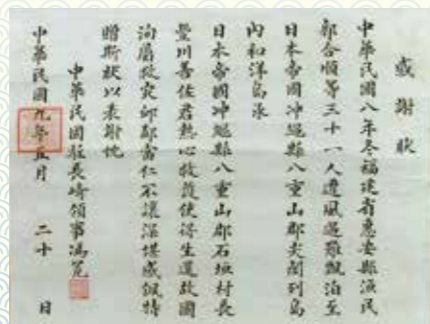 感謝狀
中華民國八年冬福建省惠安縣漁民
郭合順等三十一人遭風遇難飄泊至
日本帝國沖繩縣八重山郡尖閣列島
內和洋島承
日本帝國沖繩縣八重山郡石垣村長
豐川善佐君熱心救護使得生還故國
洵屬救災卹鄰當仁不讓深堪感佩特
贈斯狀以表謝忱
中華民國駐長崎領事馮冕
中華民國九年五月 二十 日